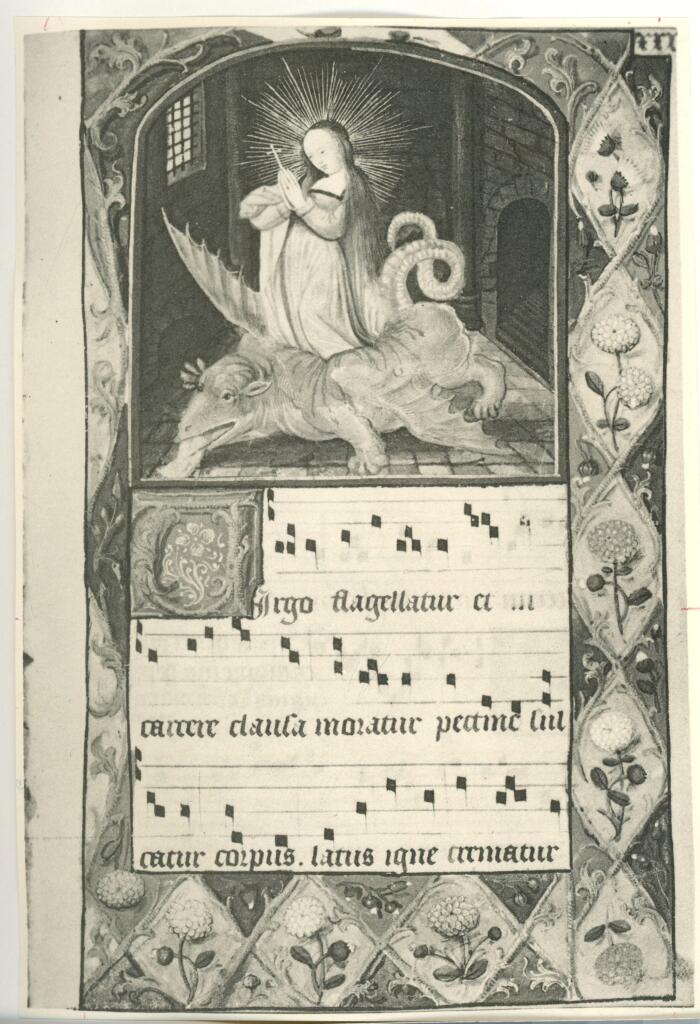 xxi
Virgo flagellatur et in
carcere clausa moratur pectine sul
catur corpus. latus igne crematur